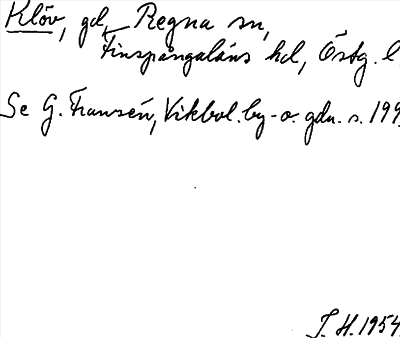 Klöv, gd, Regna sn,
Finspångaläns hd, Östg. l.
Se G. Fransén, Vikbol. by- o. gdn. s. 199.
J. H. 1954